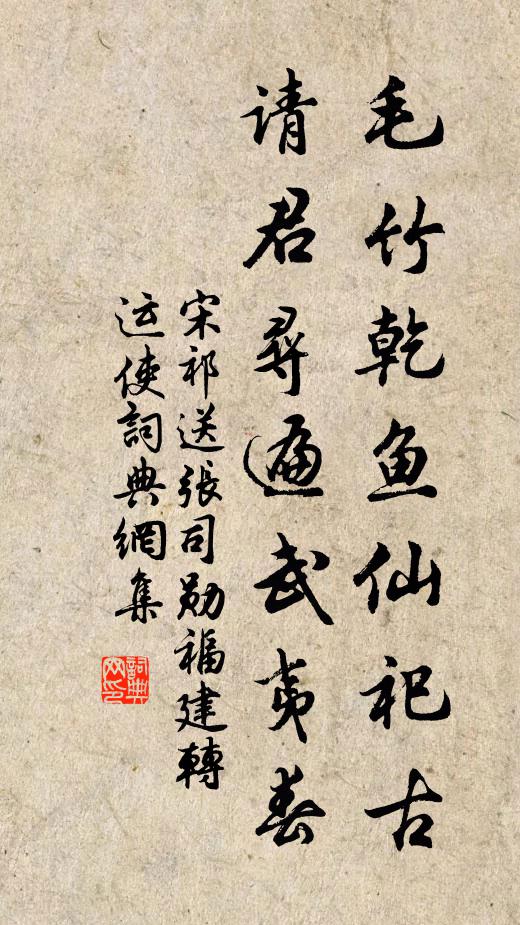 毛竹乾鱼仙祀古
请君寻遍武夷春
宋祁送张司勋福建轉
运使詞典網集
詞典网印